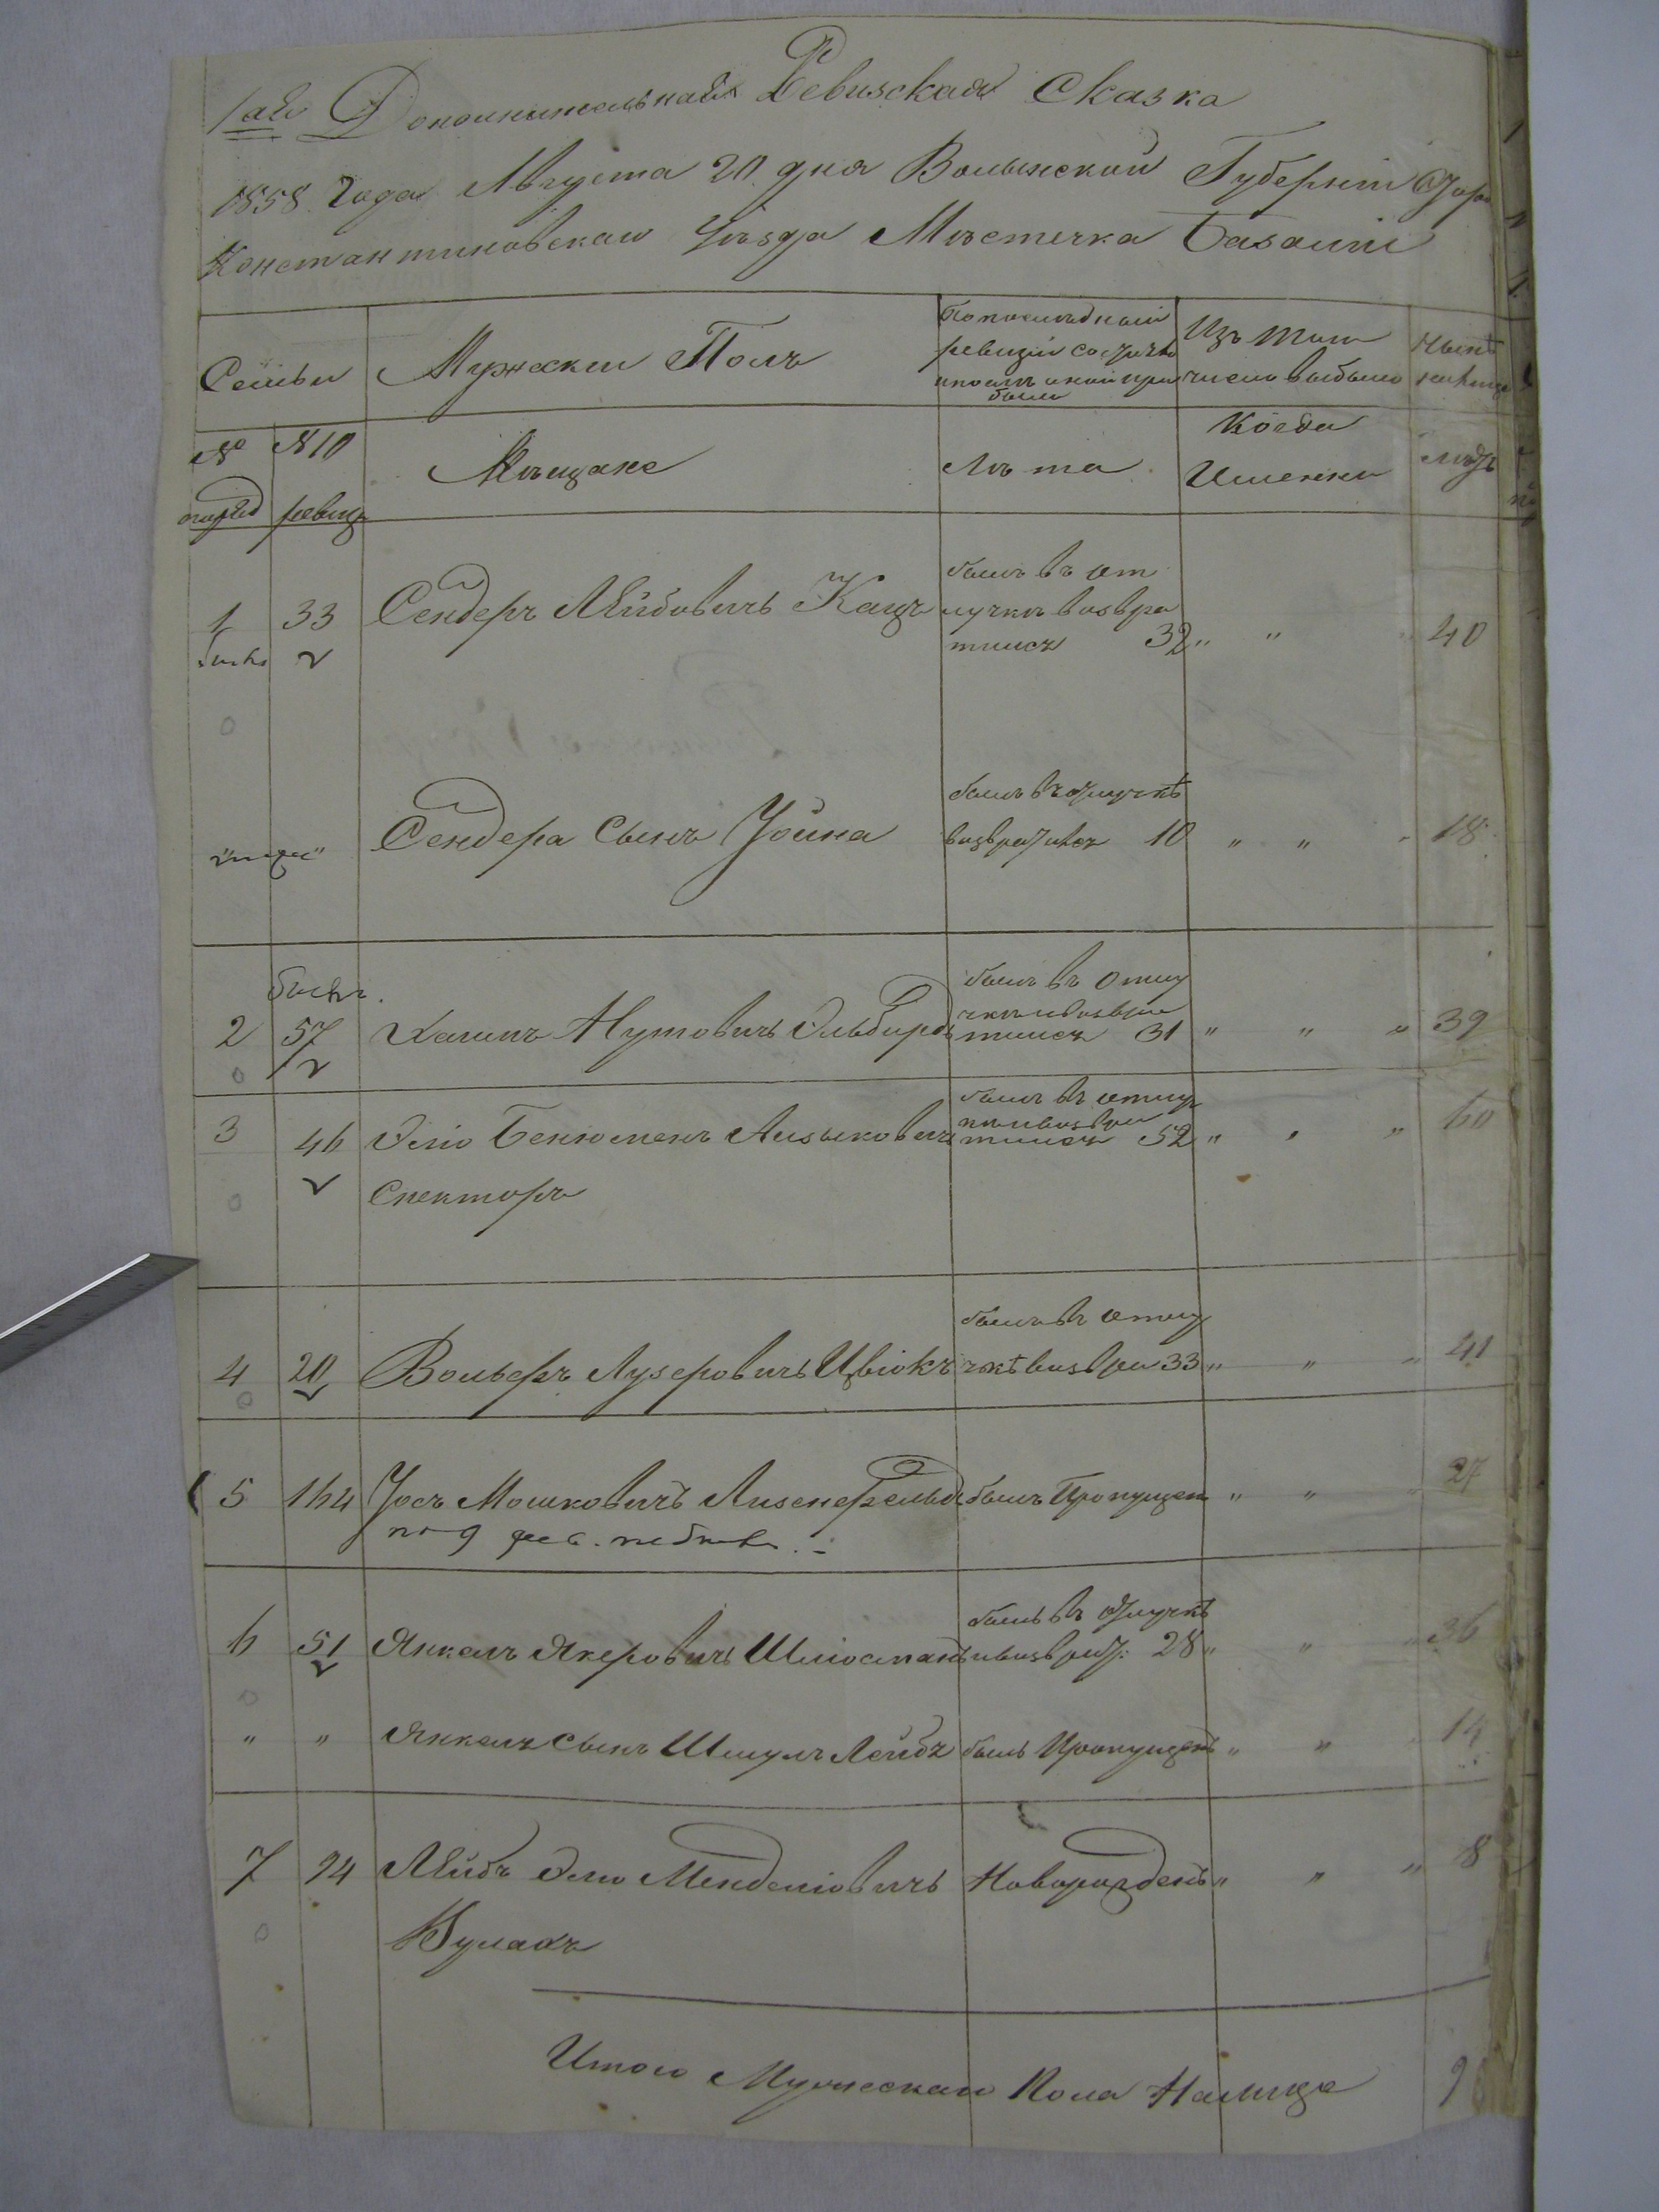 1ая Дополнительная Ревизская Сказка
1858 года Августа 20 дня Волынской Губерніи
Константиновскаго Уѣзда Мѣстечка Базаліи
Семьи Мужескій Полъ По послѣдней ревизіи состояло и послѣ оной прибыло Изъ того числа выбыло Нынѣ налицо
№ №10 Мѣщане Лѣта Когда Именно Лѣтъ
ревиз
1 33 Сендеръ Лейбовичъ Кацъ былъ въ отлучкѣ возвратился 32 " " " 40
Сендера Сынъ Уойна былъ въ отлучкѣ возвратился 10 " " " 18
2 57 Хаимъ Нутовичъ былъ въ отлучкѣ и возвратился 31 " " " 39
3 46 Элю Бенюменъ Айзыковичъ былъ въ отлучкѣ и возвратился 52 " " " 60
Спекторъ
4 20 Вольфъ Лузеровичъ Цвіокъ былъ въ отлучкѣ возвра 33 " " " 41
5 164 Іосъ Мошковичъ Айзенфельдъ былъ Пропущен " " " 27
6 51 Янкель Якеровичъ былъ въ отлучкѣ и возврат: 28 " " " 36
" " Янкеля Сынъ Шмулъ Лейбъ былъ Пропущенъ " " " 14
7 94 Лейбъ Элю Менделіовичъ Новорожденъ " " " 8
Кулакъ
Итого Мужескаго Пола Налицо 9